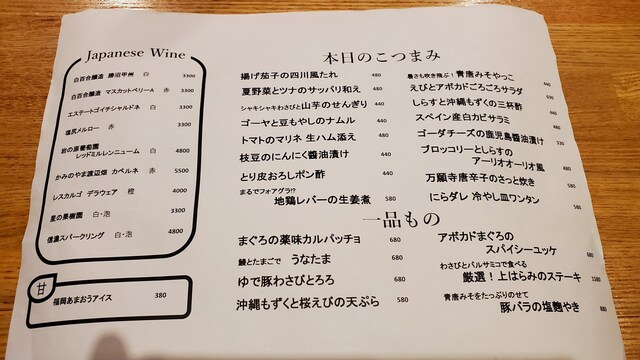 Japanese Wine
白百合醸造 勝沼甲州 白 3300
白百合醸造 マスカットベリーA 赤 3300
エステートゴイチシャルドネ 白 3300
塩尻メルロー 赤 3300
岩の原葡萄園
レッドミルレンニューム 白 4800
かみのやま渡辺畑 カベルネ 赤 5500
レスカルゴ デラウェア 橙 4000
星の果樹園 白・泡 3300
信濃スパークリング 白・泡 4800
甘
福岡あまおうアイス 380
本日のこつまみ
揚げ茄子の四川風たれ 480
夏野菜とツナのサッパリ和え 480
シャキシャキわさびと山芋のせんぎり 440
ゴーヤと豆もやしのナムル 440
トマトのマリネ 生ハム添え 480
枝豆のにんにく醬油漬け 440
とり皮おろしポン酢 440
まるでフォアグラ!?
地鶏レバーの生姜煮 580
暑さも吹き飛ぶ!青唐みそやっこ 440
えびとアボカドごろごろサラダ 690
しらすと沖縄もずくの三杯酢 440
スペイン産白カビサラミ 480
ゴーダチーズの鹿児島醬油漬け 330
ブロッコリーとしらすの
アーリオオーリオ風 480
万願寺唐辛子のさっと炊き 580
にらダレ 冷やし皿ワンタン 580
一品もの
まぐろの薬味カルパッチョ 680
鰻とたまごで うなたま 680
ゆで豚わさびとろろ 680
沖縄もずくと桜えびの天ぷら 580
アボカドまぐろの
スパイシーユッケ 680
わさびとバルサミコで食べる
厳選!上はらみのステーキ 1580
青唐みそをたっぷりのせて
豚バラの塩麴やき 880